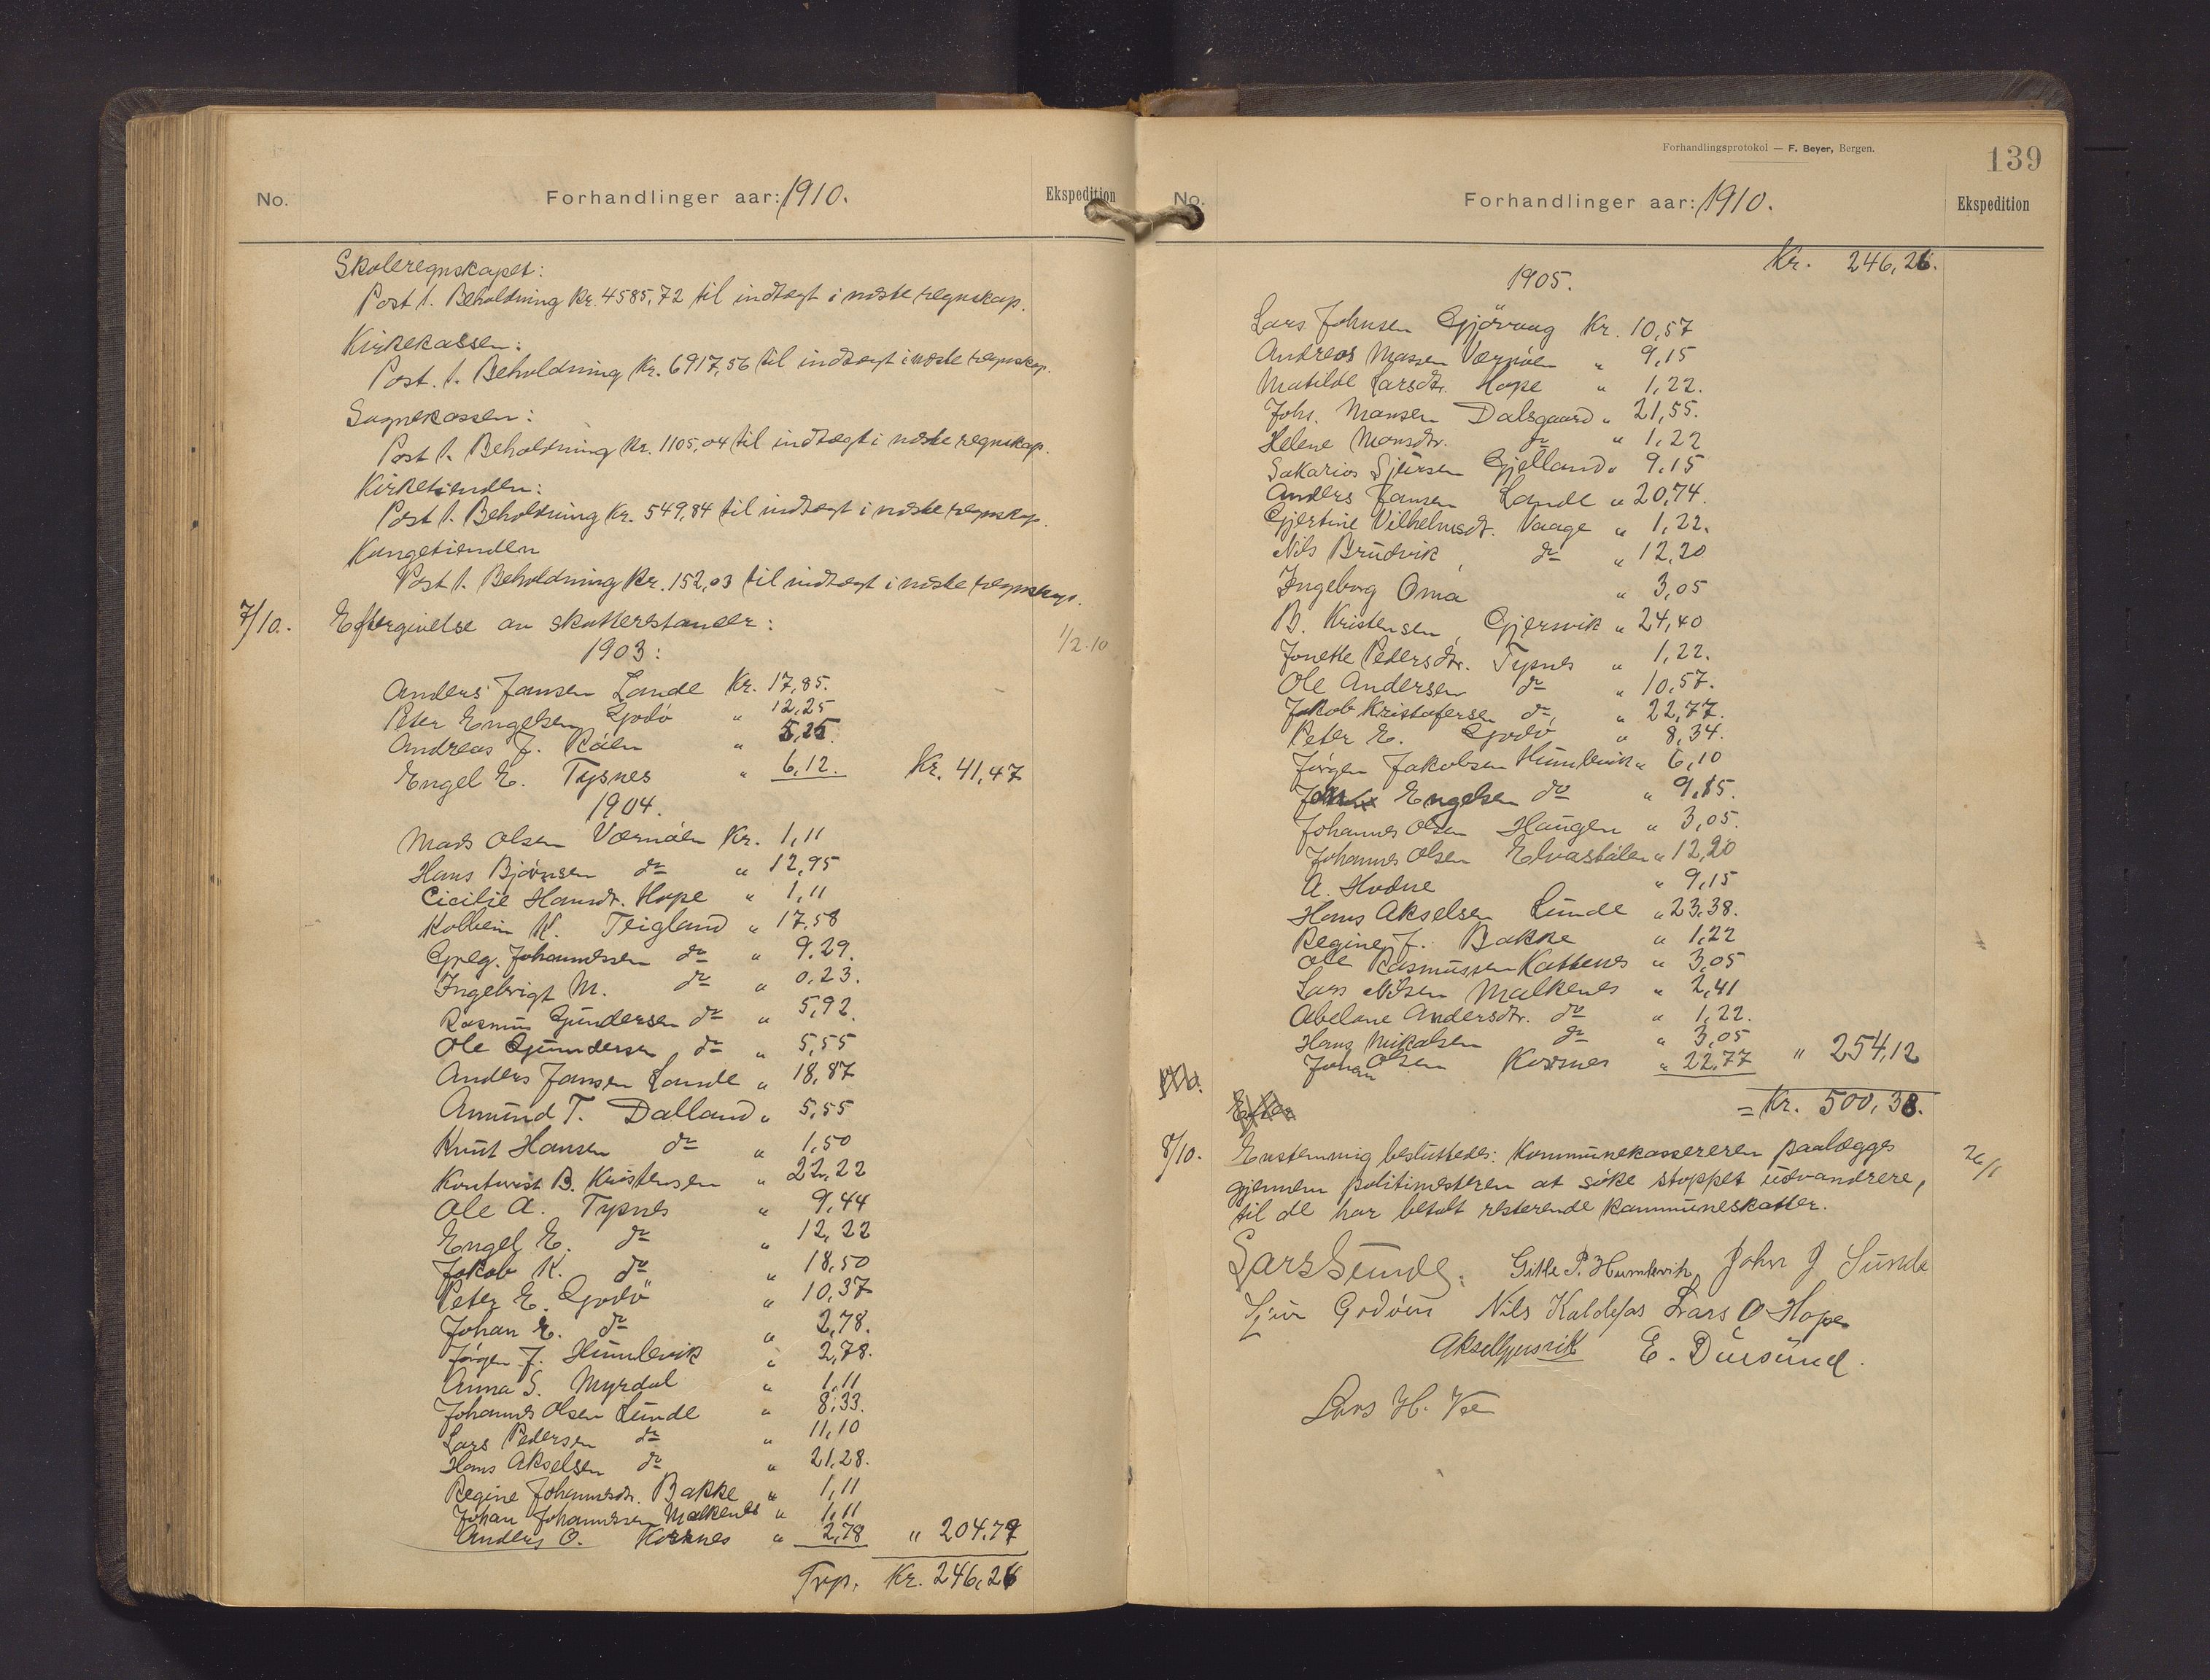 No.
Forhandlinger aar: 1910.
Ekspedition
Skoleregnskapet:
Post 1. Beholdning kr. 4585,72 til indtægt i næste regnskap.
Kirkekassen:
Post. 1. Beholdning kr. 6917,56 til indtægt i næste regnskap.
Sognekassen:
Post 1. Beholdning kr. 1105,04 til indtægt i næste regnskap.
Kirketienden:
Post 1. Beholdning kr. 549,84 til indtægt i næste regnskap.
Kongetienden
Post 1. Beholdning kr. 152,03 til indtægt i næste regnskap.
7/10. Eftergivelse av skatterestancer: 1/2.10
1903:
Anders Jansen Lande Kr. 17,85.
Peter Engelsen Godö " 12,25
Andreas J. Röen " 5,25.
Engel E. Tysnes " 6,12. Kr. 41,47
1904.
Mads Olsen Værnöen Kr. 1,11
Hans Björnsen do " 12,95
Cicilie Hansdr. Hope " 1,11
Kolbein K. Teigland " 17,58
Greg. Johannessen do " 9,29.
Ingebrigt M. do " 0,23.
Rasmus Gundersen do " 5,92.
Ole Gundersen do " 5,55
Anders Jansen Lande " 18,87
Amund T. Dalland " 5,55
Knut Hansen do " 1,50
B. Kristensen " 22,22
Ole A. Tysnes " 9,44
Engel E. do " 12,22
Jakob K. do " 18,50
Peter E. Godö " 10,37
Johan E. do " 2,78.
Jörgen J. Humlevik " 2,78.
Anna S. Myrdal " 1,11
Johannes Olsen Lunde " 8,33.
Lars Pedersen do " 11,10
Hans Akselsen do " 21,28.
Regine Johannesdr. Bakke " 1,11
Johan Johannessen Malkenes " 1,11
Anders O. Korsnes " 2,78 " 204,79
Trp. Kr. 246,26
Forhandlingsprotokol — F. Beyer, Bergen.
139
No.
Forhandlinger aar: 1910.
Ekspedition
Kr. 246,26.
1905.
Lars Johnsen Gjövaag Kr. 10,57
Andreas Monsen Værnöen " 9,15
Matilde Larsdtr. Hope " 1,22.
Johs. Monsen Dalsgaard " 21,55.
Helene Monsdtr. do " 1,22
Sakarias Sjursen Gjelland " 9,15
Anders Jansen Lande " 20,74.
Gjertine Vilhelmsdt. Vaage " 1,22.
Nils Brudvik do " 12,20
Ingeborg Oma " 3,05
B. Kristensen Gjersvik " 24,40
Jonette Pedersdtr. Tysnes " 1,22.
Ole Andersen do " 10,57.
Jakob Kristofersen do " 22,77.
Peter E. Godö " 8,34.
Jörgen Jakobsen Humlevik " 6,10
Engelsen do " 9,15.
Johannes Olsen Haugen " 3,05.
Johannes Olsen Elvastölen " 12,20
A. Hodne " 9,15
Hans Akselsen Lunde " 23,38.
Regine J. Bakke " 1,22
Ole Rasmussen Kattenes " 3,05
Lars Nilsen Malkenes " 2,41
Abelone Andersdtr. do " 1,22.
Hans Mikalsen do " 3,05
Johan Olsen Korsnes " 22,77 " 254,12
Efter = Kr. 500,38.
8/10. Enstemmig besluttedes: Kommunekassereren paalægges 26/1
gjennem politimesteren at söke stoppet utvandrere,
til de har betalt resterende kommuneskatter.
Lars Sunde. Gitle P. Humlevik John J Sunde
Sjur Godøen Nils Kaldefos Lars O Hope
Aksel Gjersvik E. Duesund.
Lars H. Vee